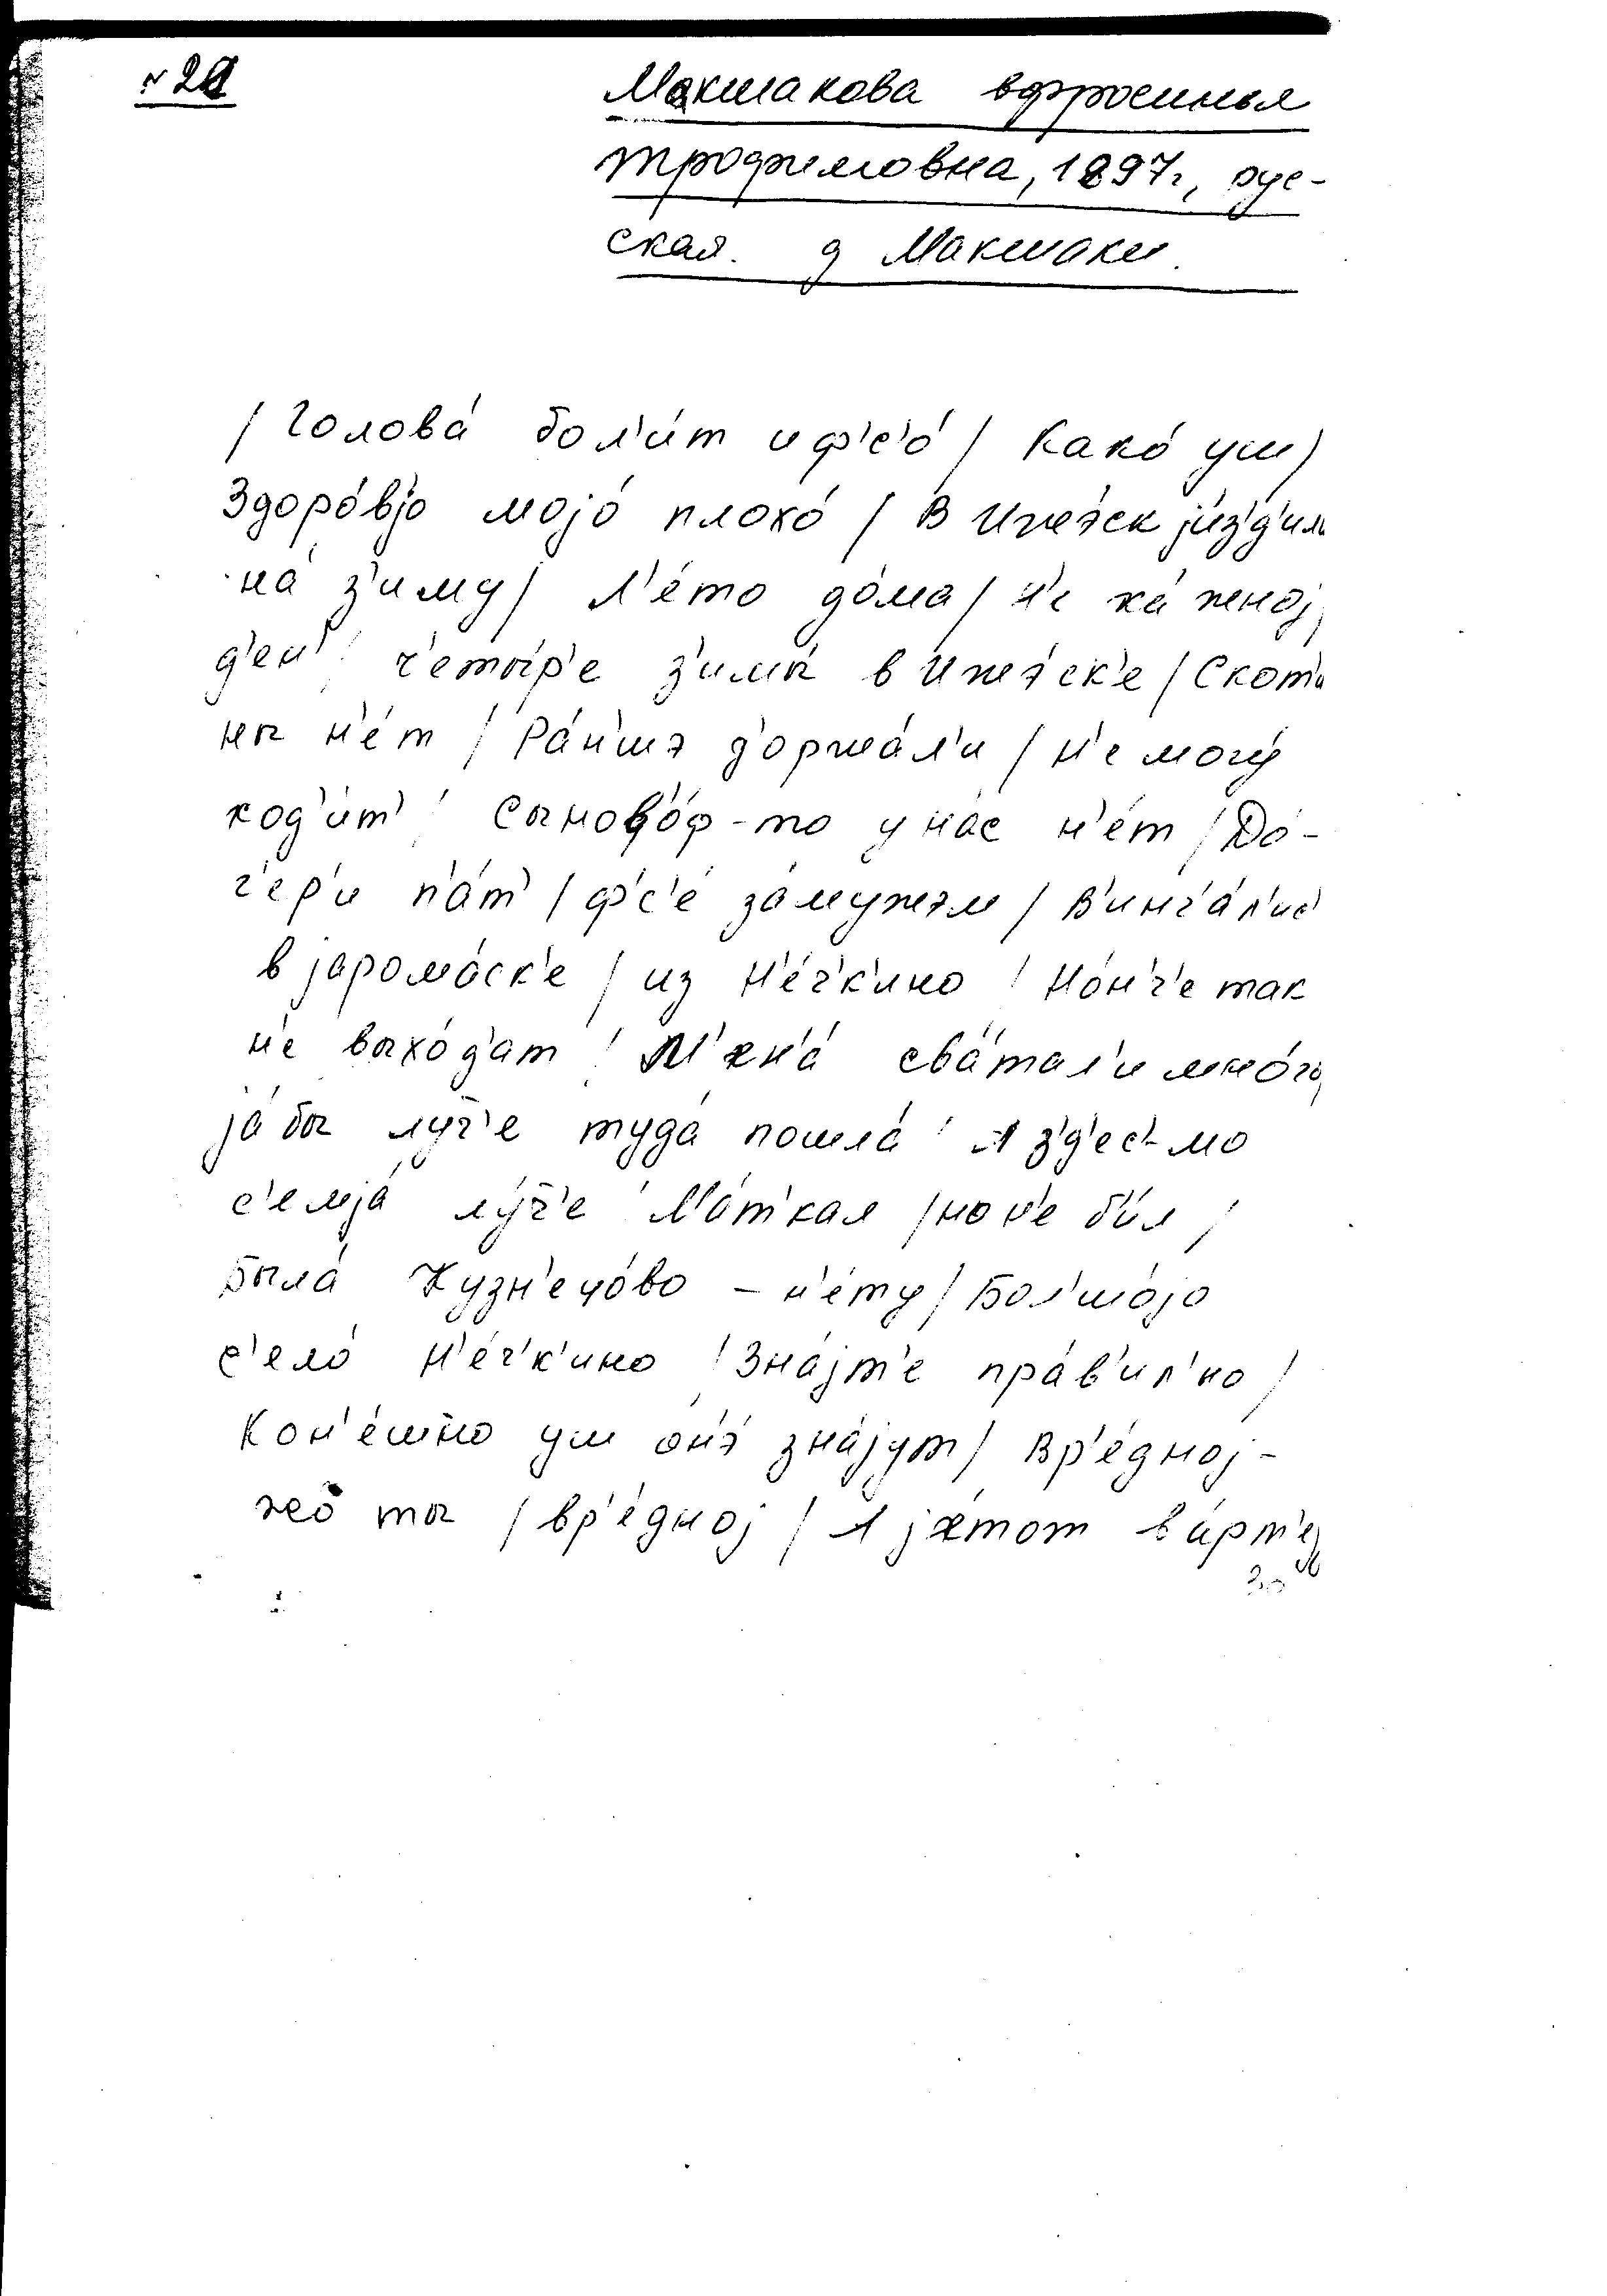 № 21
Макшакова Вфросинья
Трофимовна, 1897г, рус-
ская. д Макшаки.
/ Голова́ бол'и́т и ф'с'о́ / Како́ уш /
Здоро́вjо моjо́ плохо́ / В Ижэ́ск jи́з'д'ил
на́ з'иму / Л'е́то до́ма / н'е ка́жноj
д'ен' / ч'еты́р'е з'имы́ в Ижэ́ск'е / Скот'и
ны н'е́т / Ра́н'шэ д'оржа́л'и / н'е могу́
ход'и́т' / Сыново́ф-то у на́с н'е́т / До́-
ч'ер'и п'а́т' / ф'с'е́ за́мужэм / В'инч'а́л'ис'
в jаромо́ск'е / из Н'е́ч'к'ино / Но́н'ч'е так
н'е выхо́д'ат / М'ен'а́ сва́тал'и мно́го
jа́ бы луч'е туда́ пошла́ / А з'д'ес'-мо
с'емjа́ лу́ч'е / М'а́т'кал / но н'е б'и́л /
Была́ Кузн'ецо́во – н'е́ту / Бол'шо́jо
с'ело́ Н'е́ч'к'ино / Зна́jт'е пра́в'ил'но /
Кон'е́шно уш он'э́ зна́jут / Вр'е́дноj-
жо ты / вр'е́дноj / А jэ́тот в а́рт'е
30